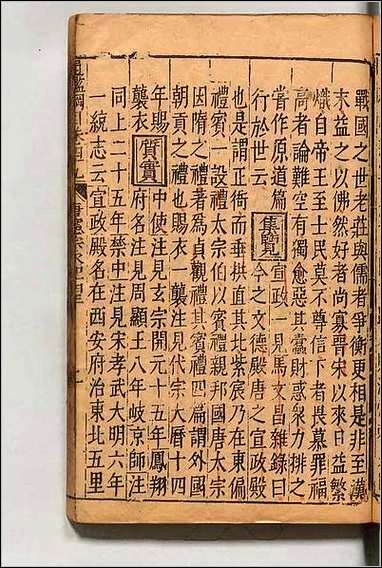 戰國之世老莊與儒者爭衡更相是非至漢
末益之以佛然好者尚寡晉宋以來日益繁
熾自帝王至士民莫不尊信下者畏慕罪福
高者論難空有獨愈惡其蠹財惑衆力排之
嘗作原道篇
行於世云
集覽
宣政一見馬文昌雜錄曰
今之文德殿唐之宣政殿
也是謂正衙而垂拱直其北紫宸乃在東偏
禮賓一設禮太宗伯以賓禮親邦國唐太宗
因隋之禮者爲貞觀禮其賓禮四篇謂外國
朝貢之禮也賜衣一襲注見代宗大曆十四
年賜
襲衣
質實
中使注見玄宗開元十五年鳳翔
府名注見周顯王八年岐京師注
同上二十五年禁中注見宋孝武大明六年
一統志云宣政殿名在西安府治東北五里